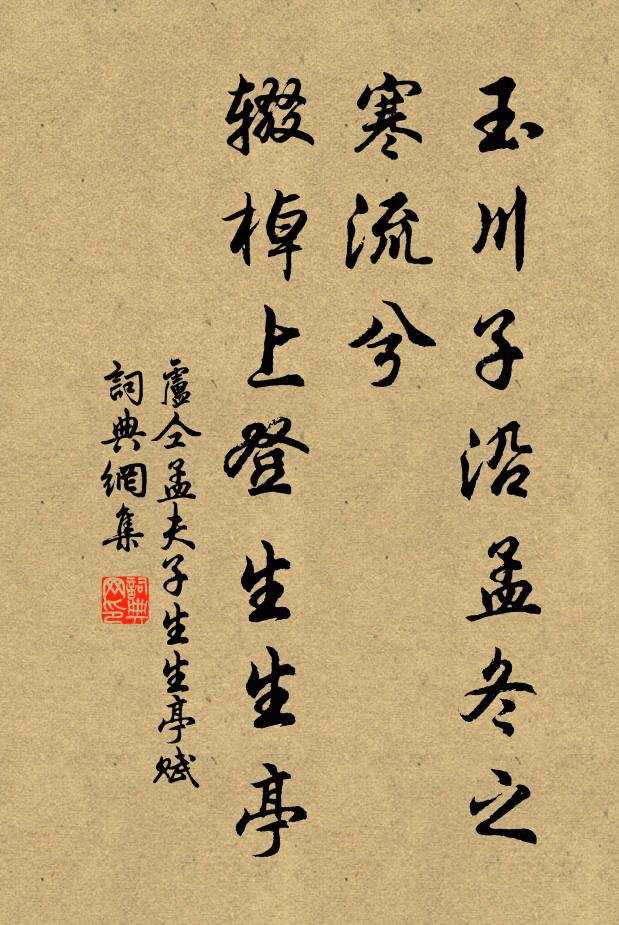 玉川子沿孟冬之
寒流兮
辍棹上登生生亭
盧仝孟夫子生生亭赋
詞典網集
詞典网印